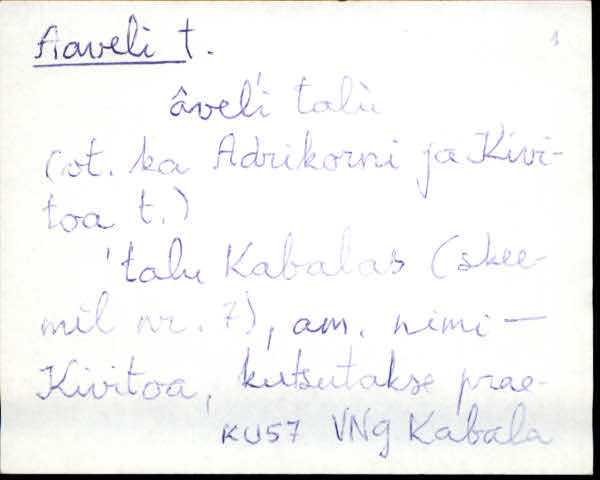 Aaveli t.
1
âveĺi talù
(vt. ka Adrikorni ja Kivi-
toa t.)
'talu Kabalas (skee-
mil nr. 7), am. nimi —
Kivitoa, kutsutakse prae-
KU57 VNg Kabala